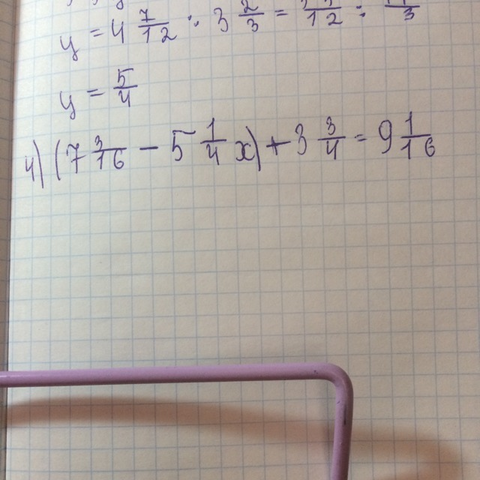 y = 4 7/12 : 3 2/3 =
y = 5/4
4) (7 3/16 - 5 1/4 x) + 3 3/4 = 9 1/16